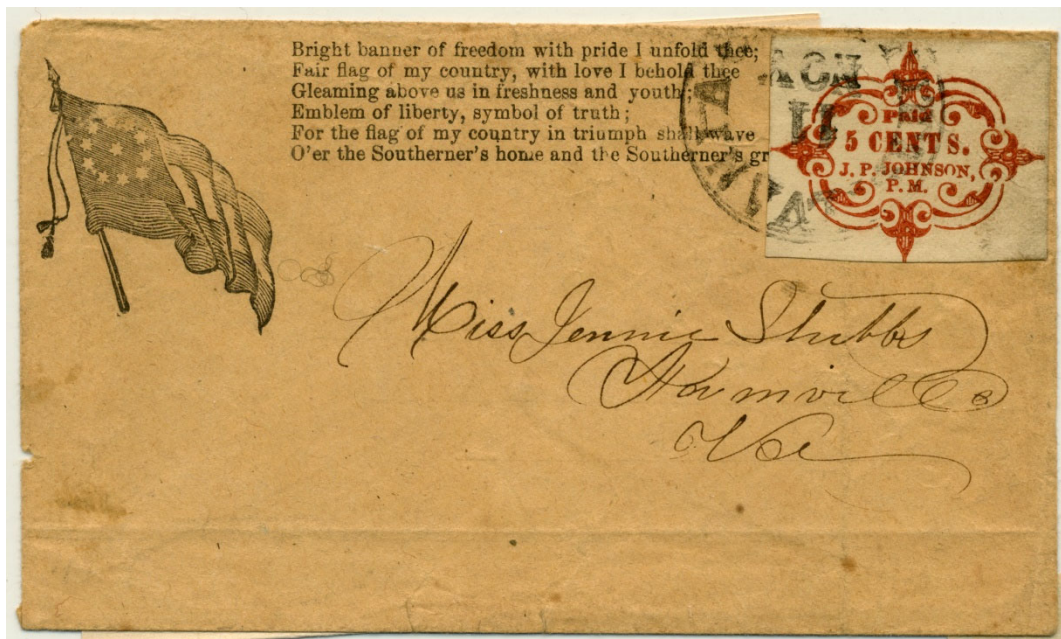 Bright banner of freedom with pride I unfold thee;
Fair flag of my country, with love I behold thee
Gleaming above us in freshness and youth;
Emblem of liberty, symbol of truth;
For the flag of my country in triumph shall wave
O'er the Southerner's home and the Southerner's gr
Paid
5 CENTS.
J. P. JOHNSON,
P. M.
11
Miss Jennie Stubbs
Farmville
Va